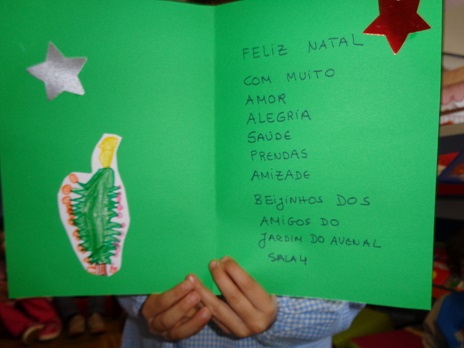 FELIZ NATAL
COM MUITO
AMOR
ALEGRIA
SAÚDE
PRENDAS
AMIZADE
BEIJINHOS DOS
AMIGOS DO
JARDIM DO AVENAL
SALA 4